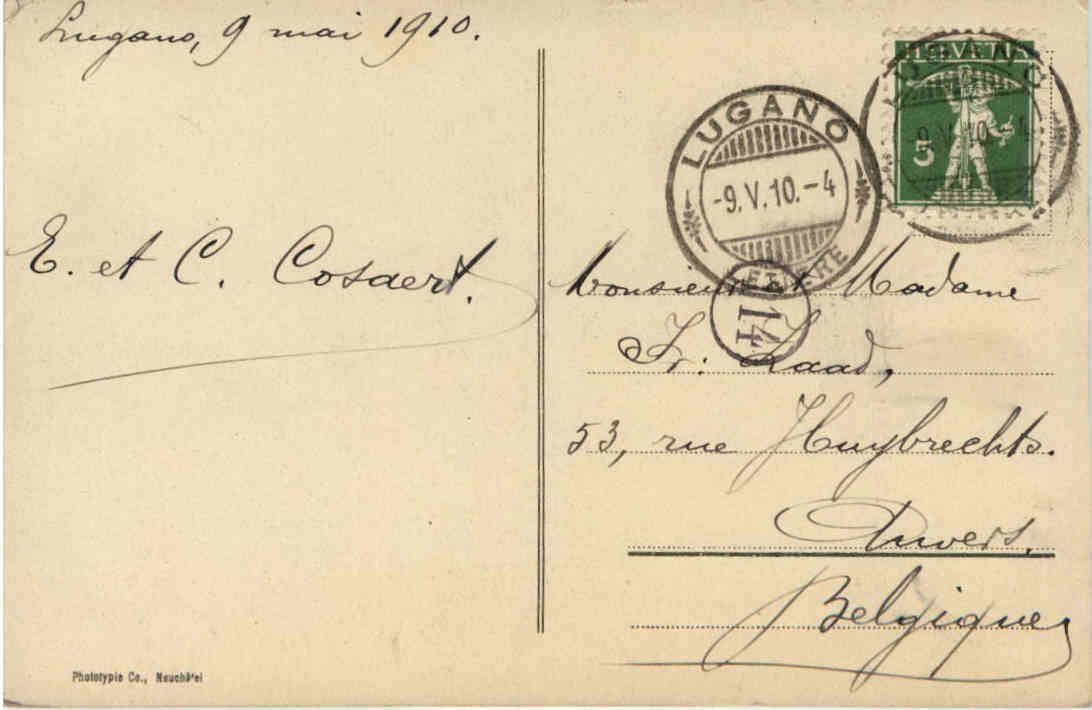 Lugano, 9 mai 1910.
HELVETIA
5
LUGANO
9.V.10.-4
LUGANO
-9.V.10.-4
LETTERE
14
E. et C. Cosaert.
Monsieur et Madame
Fr. Laad,
53, rue Huybrechts.
Anvers.
Belgique
Phototypie Co., Neuchâtel